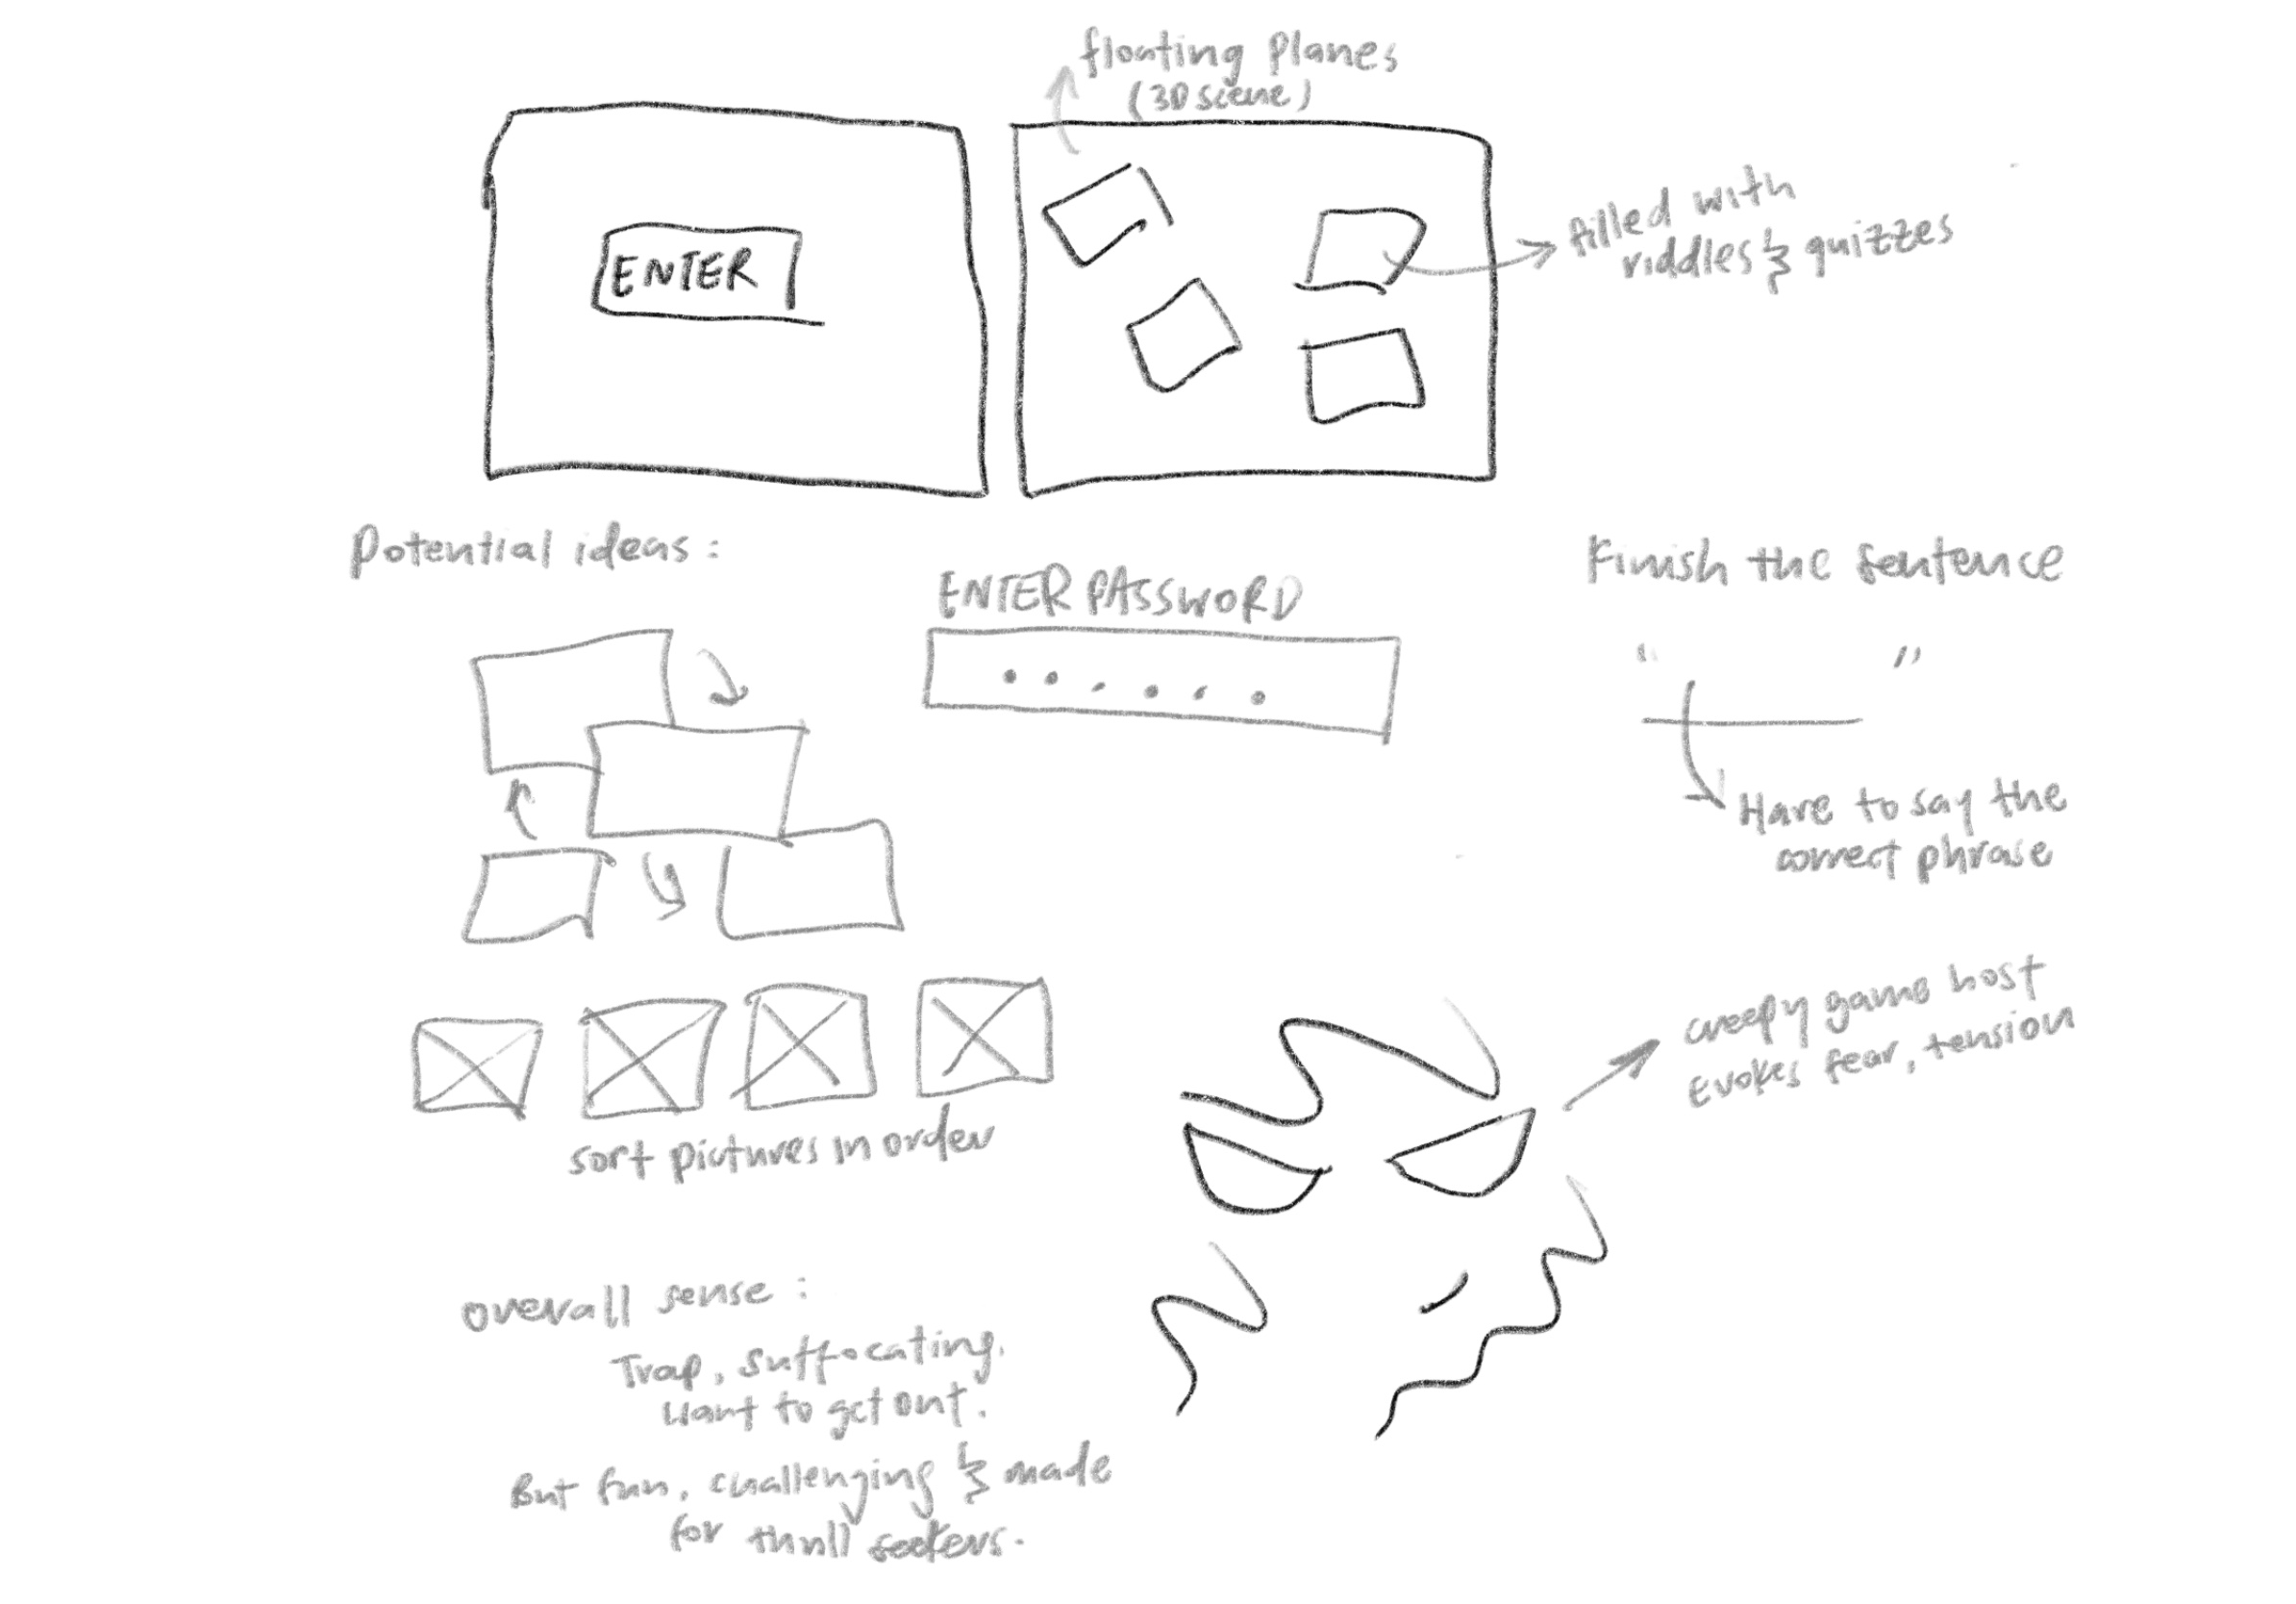 floating planes
(3D scene)
ENTER
filled with
riddles & quizzes
Potential ideas:
ENTER PASSWORD
Finish the sentence
“ ”
Have to say the
correct phrase
sort pictures in order
creepy game host
Evokes fear, tension
overall sense:
Trap, suffocating.
Want to get out.
But fun, challenging & made
for thrill seekers.